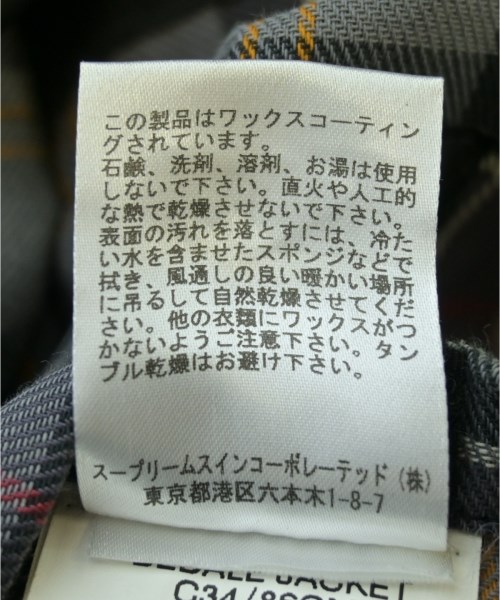 この製品はワックスコーティン
グされています。
石鹸、洗剤、溶剤、お湯は使用
しないで下さい。直火や人工的
な熱で乾燥させないで下さい。
表面の汚れを落とすには、冷た
い水を含ませたスポンジなどで
拭き、風通しの良い暖かい場所
に吊るして自然乾燥させてくだ
さい。他の衣類にワックスがつ
かないようご注意下さい。タン
ブル乾燥はお避け下さい。
スープリームスインコーポレーテッド(株)
東京都港区六本木1-8-7
BEDALE JACKET